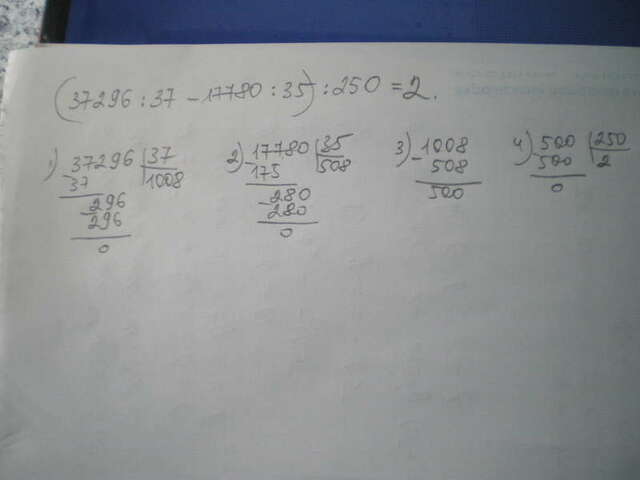 (37296 : 37 - 17780 : 35) : 250 = 2.
1) 37296 | 37
- 37 1008
- 296
296
0
2) 17780 | 35
- 175 508
- 280
280
0
3) - 1008
508
500
4) - 500 | 250
500 2
0